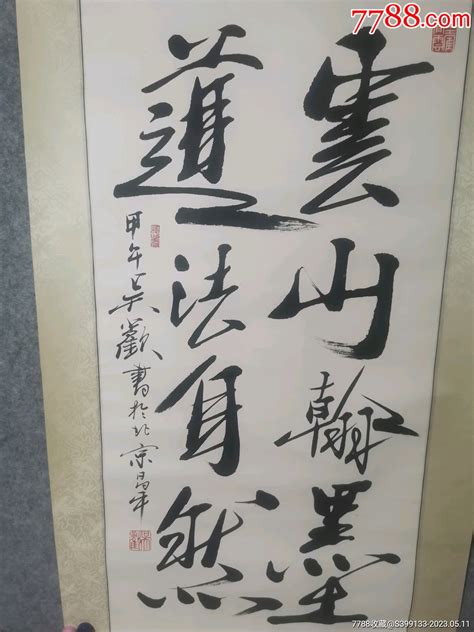 7788.com
雲山翰墨
道法自然
甲午吴歡書於北京昌平
7788收藏@S399133-2023.05.11